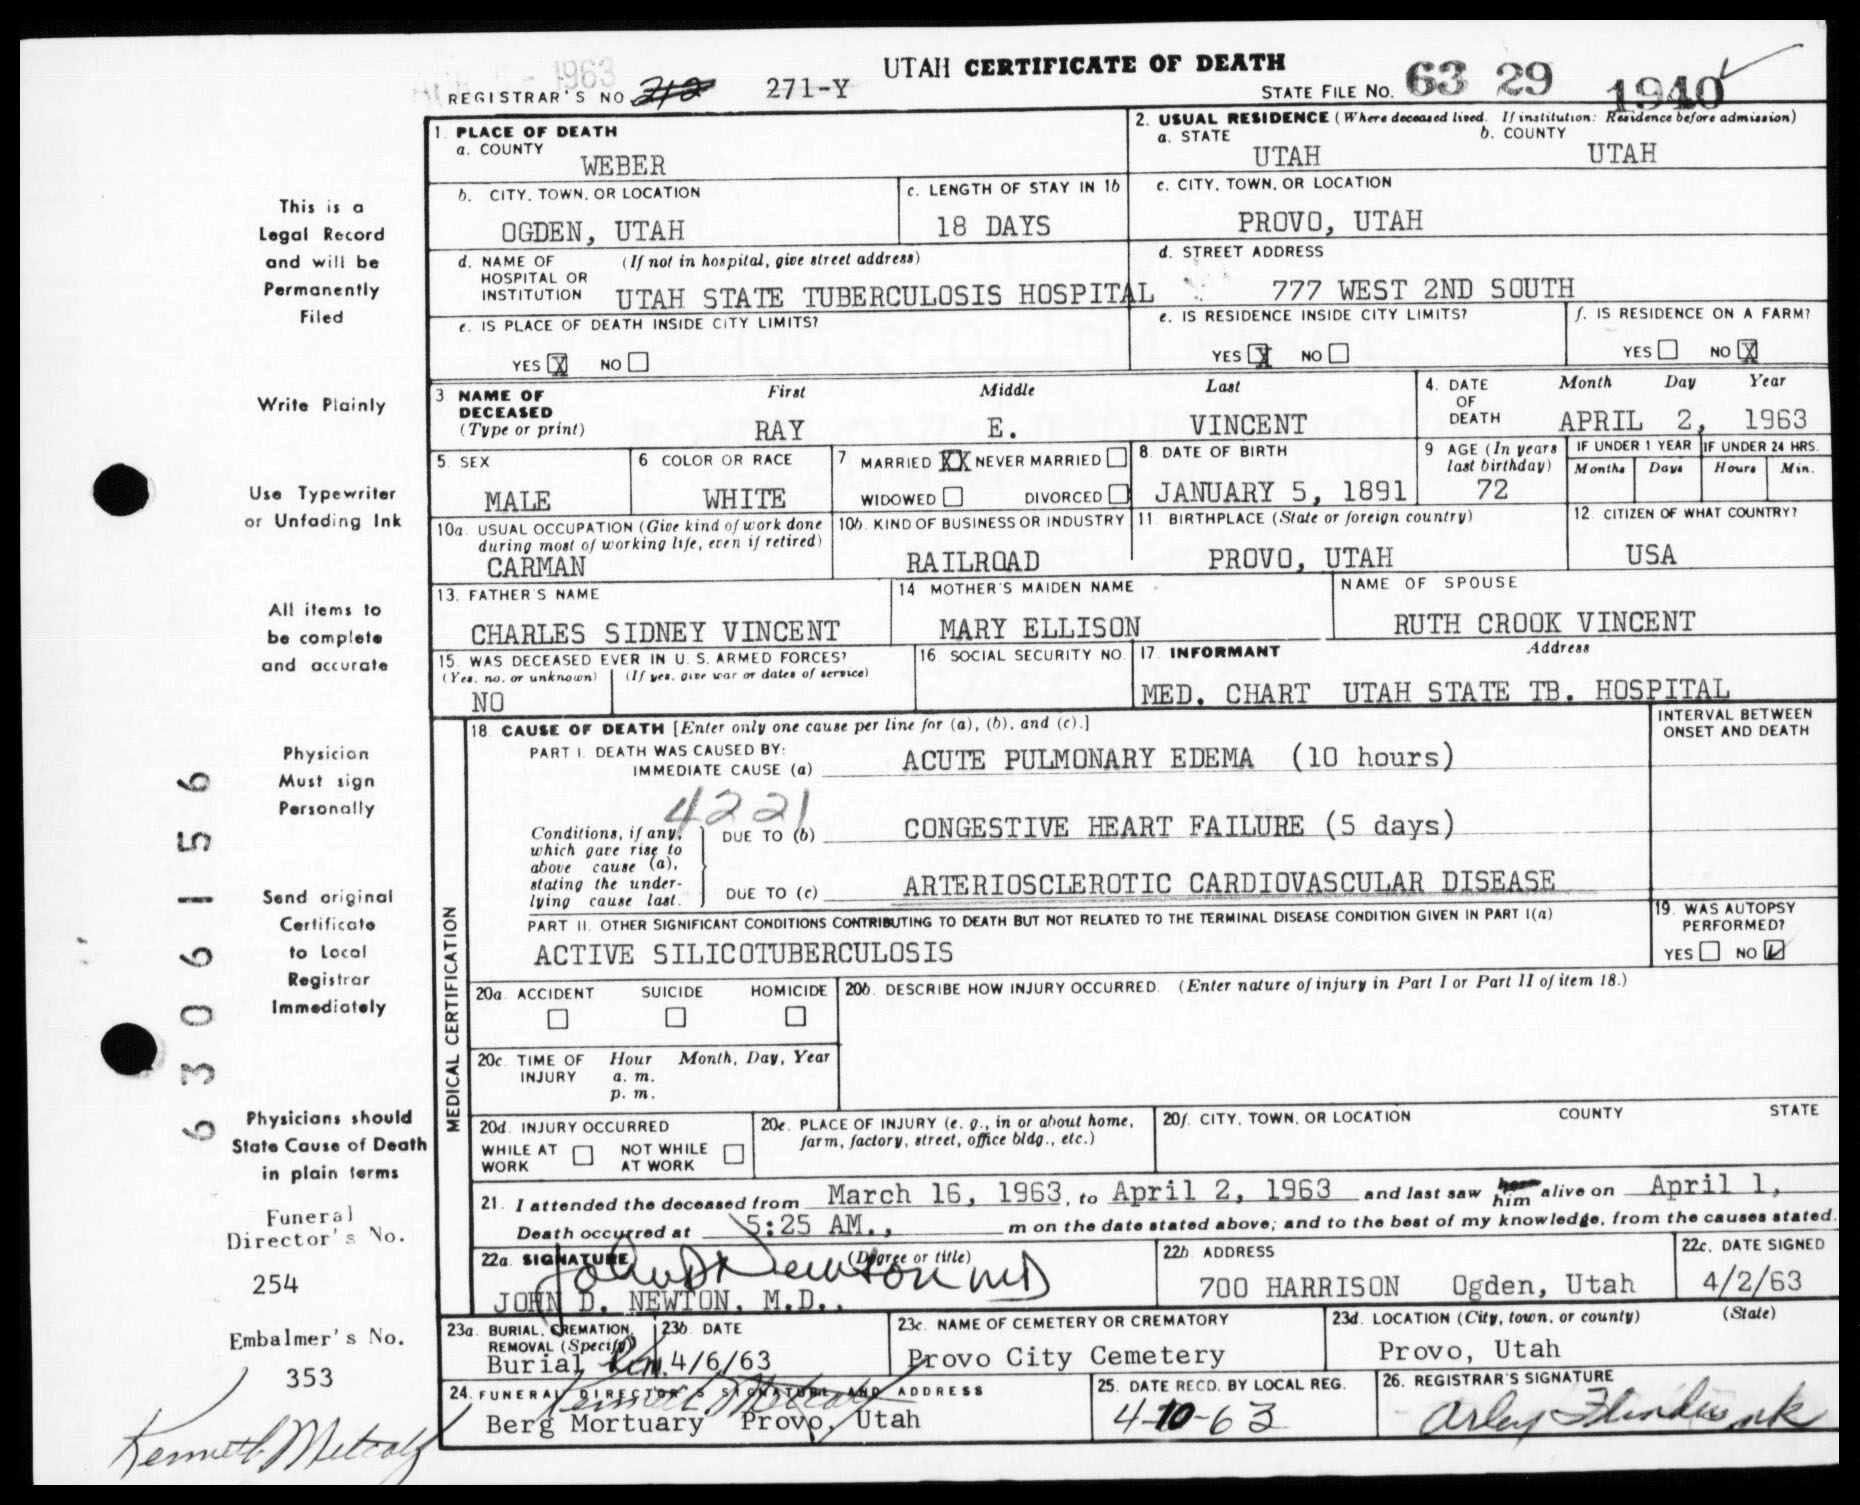 UTAH CERTIFICATE OF DEATH
REGISTRAR'S NO. 212 271-Y
STATE FILE NO. 63 29 1940
1963
1. PLACE OF DEATH
a. COUNTY
WEBER
2. USUAL RESIDENCE (Where deceased lived. If institution: Residence before admission)
a. STATE b. COUNTY
UTAH UTAH
b. CITY, TOWN, OR LOCATION
OGDEN, UTAH
c. LENGTH OF STAY IN 1b
18 DAYS
c. CITY, TOWN, OR LOCATION
PROVO, UTAH
d. NAME OF (If not in hospital, give street address)
HOSPITAL OR
INSTITUTION UTAH STATE TUBERCULOSIS HOSPITAL
d. STREET ADDRESS
777 WEST 2ND SOUTH
e. IS PLACE OF DEATH INSIDE CITY LIMITS?
YES X NO
e. IS RESIDENCE INSIDE CITY LIMITS?
YES X NO
f. IS RESIDENCE ON A FARM?
YES NO X
3 NAME OF First Middle Last
DECEASED
(Type or print) RAY E. VINCENT
4. DATE Month Day Year
OF
DEATH APRIL 2, 1963
5. SEX
MALE
6 COLOR OR RACE
WHITE
7 MARRIED XX NEVER MARRIED
WIDOWED DIVORCED
8. DATE OF BIRTH
JANUARY 5, 1891
9 AGE (In years
last birthday)
72
IF UNDER 1 YEAR IF UNDER 24 HRS.
Months Days Hours Min.
10a. USUAL OCCUPATION (Give kind of work done
during most of working life, even if retired)
CARMAN
10b. KIND OF BUSINESS OR INDUSTRY
RAILROAD
11. BIRTHPLACE (State or foreign country)
PROVO, UTAH
12. CITIZEN OF WHAT COUNTRY?
USA
13. FATHER'S NAME
CHARLES SIDNEY VINCENT
14 MOTHER'S MAIDEN NAME
MARY ELLISON
NAME OF SPOUSE
RUTH CROOK VINCENT
15. WAS DECEASED EVER IN U. S. ARMED FORCES?
(Yes, no, or unknown) (If yes, give war or dates of service)
NO
16. SOCIAL SECURITY NO.
17. INFORMANT Address
MED. CHART UTAH STATE TB. HOSPITAL
MEDICAL CERTIFICATION
18. CAUSE OF DEATH [Enter only one cause per line for (a), (b), and (c).]
INTERVAL BETWEEN
ONSET AND DEATH
PART I. DEATH WAS CAUSED BY:
IMMEDIATE CAUSE (a) ACUTE PULMONARY EDEMA (10 hours)
4221
Conditions, if any,
which gave rise to
above cause (a),
stating the under-
lying cause last.
DUE TO (b) CONGESTIVE HEART FAILURE (5 days)
DUE TO (c) ARTERIOSCLEROTIC CARDIOVASCULAR DISEASE
PART II. OTHER SIGNIFICANT CONDITIONS CONTRIBUTING TO DEATH BUT NOT RELATED TO THE TERMINAL DISEASE CONDITION GIVEN IN PART I(a)
ACTIVE SILICOTUBERCULOSIS
19. WAS AUTOPSY
PERFORMED?
YES NO
20a. ACCIDENT SUICIDE HOMICIDE
20b. DESCRIBE HOW INJURY OCCURRED. (Enter nature of injury in Part I or Part II of item 18.)
20c. TIME OF Hour Month, Day, Year
INJURY a. m.
p. m.
20d. INJURY OCCURRED
WHILE AT NOT WHILE
WORK AT WORK
20e. PLACE OF INJURY (e. g., in or about home,
farm, factory, street, office bldg., etc.)
20f. CITY, TOWN, OR LOCATION COUNTY STATE
21. I attended the deceased from March 16, 1963, to April 2, 1963 and last saw her him alive on April 1,
Death occurred at 5:25 AM., m on the date stated above; and to the best of my knowledge, from the causes stated.
22a. SIGNATURE (Degree or title)
John D Newton MD
JOHN D. NEWTON, M.D.,
22b. ADDRESS
700 HARRISON Ogden, Utah
22c. DATE SIGNED
4/2/63
23a. BURIAL, CREMATION,
REMOVAL (Specify)
Burial Rem.
23b. DATE
4/6/63
23c. NAME OF CEMETERY OR CREMATORY
Provo City Cemetery
23d. LOCATION (City, town, or county) (State)
Provo, Utah
24. FUNERAL DIRECTOR'S SIGNATURE AND ADDRESS
Kenneth Metcalf
Berg Mortuary Provo, Utah
25. DATE RECD. BY LOCAL REG.
4-10-63
26. REGISTRAR'S SIGNATURE
This is a
Legal Record
and will be
Permanently
Filed
Write Plainly
Use Typewriter
or Unfading Ink
All items to
be complete
and accurate
Physician
Must sign
Personally
Send original
Certificate
to Local
Registrar
Immediately
Physicians should
State Cause of Death
in plain terms
Funeral
Director's No.
254
Embalmer's No.
353
Kenneth Metcalf
63 06 1 56